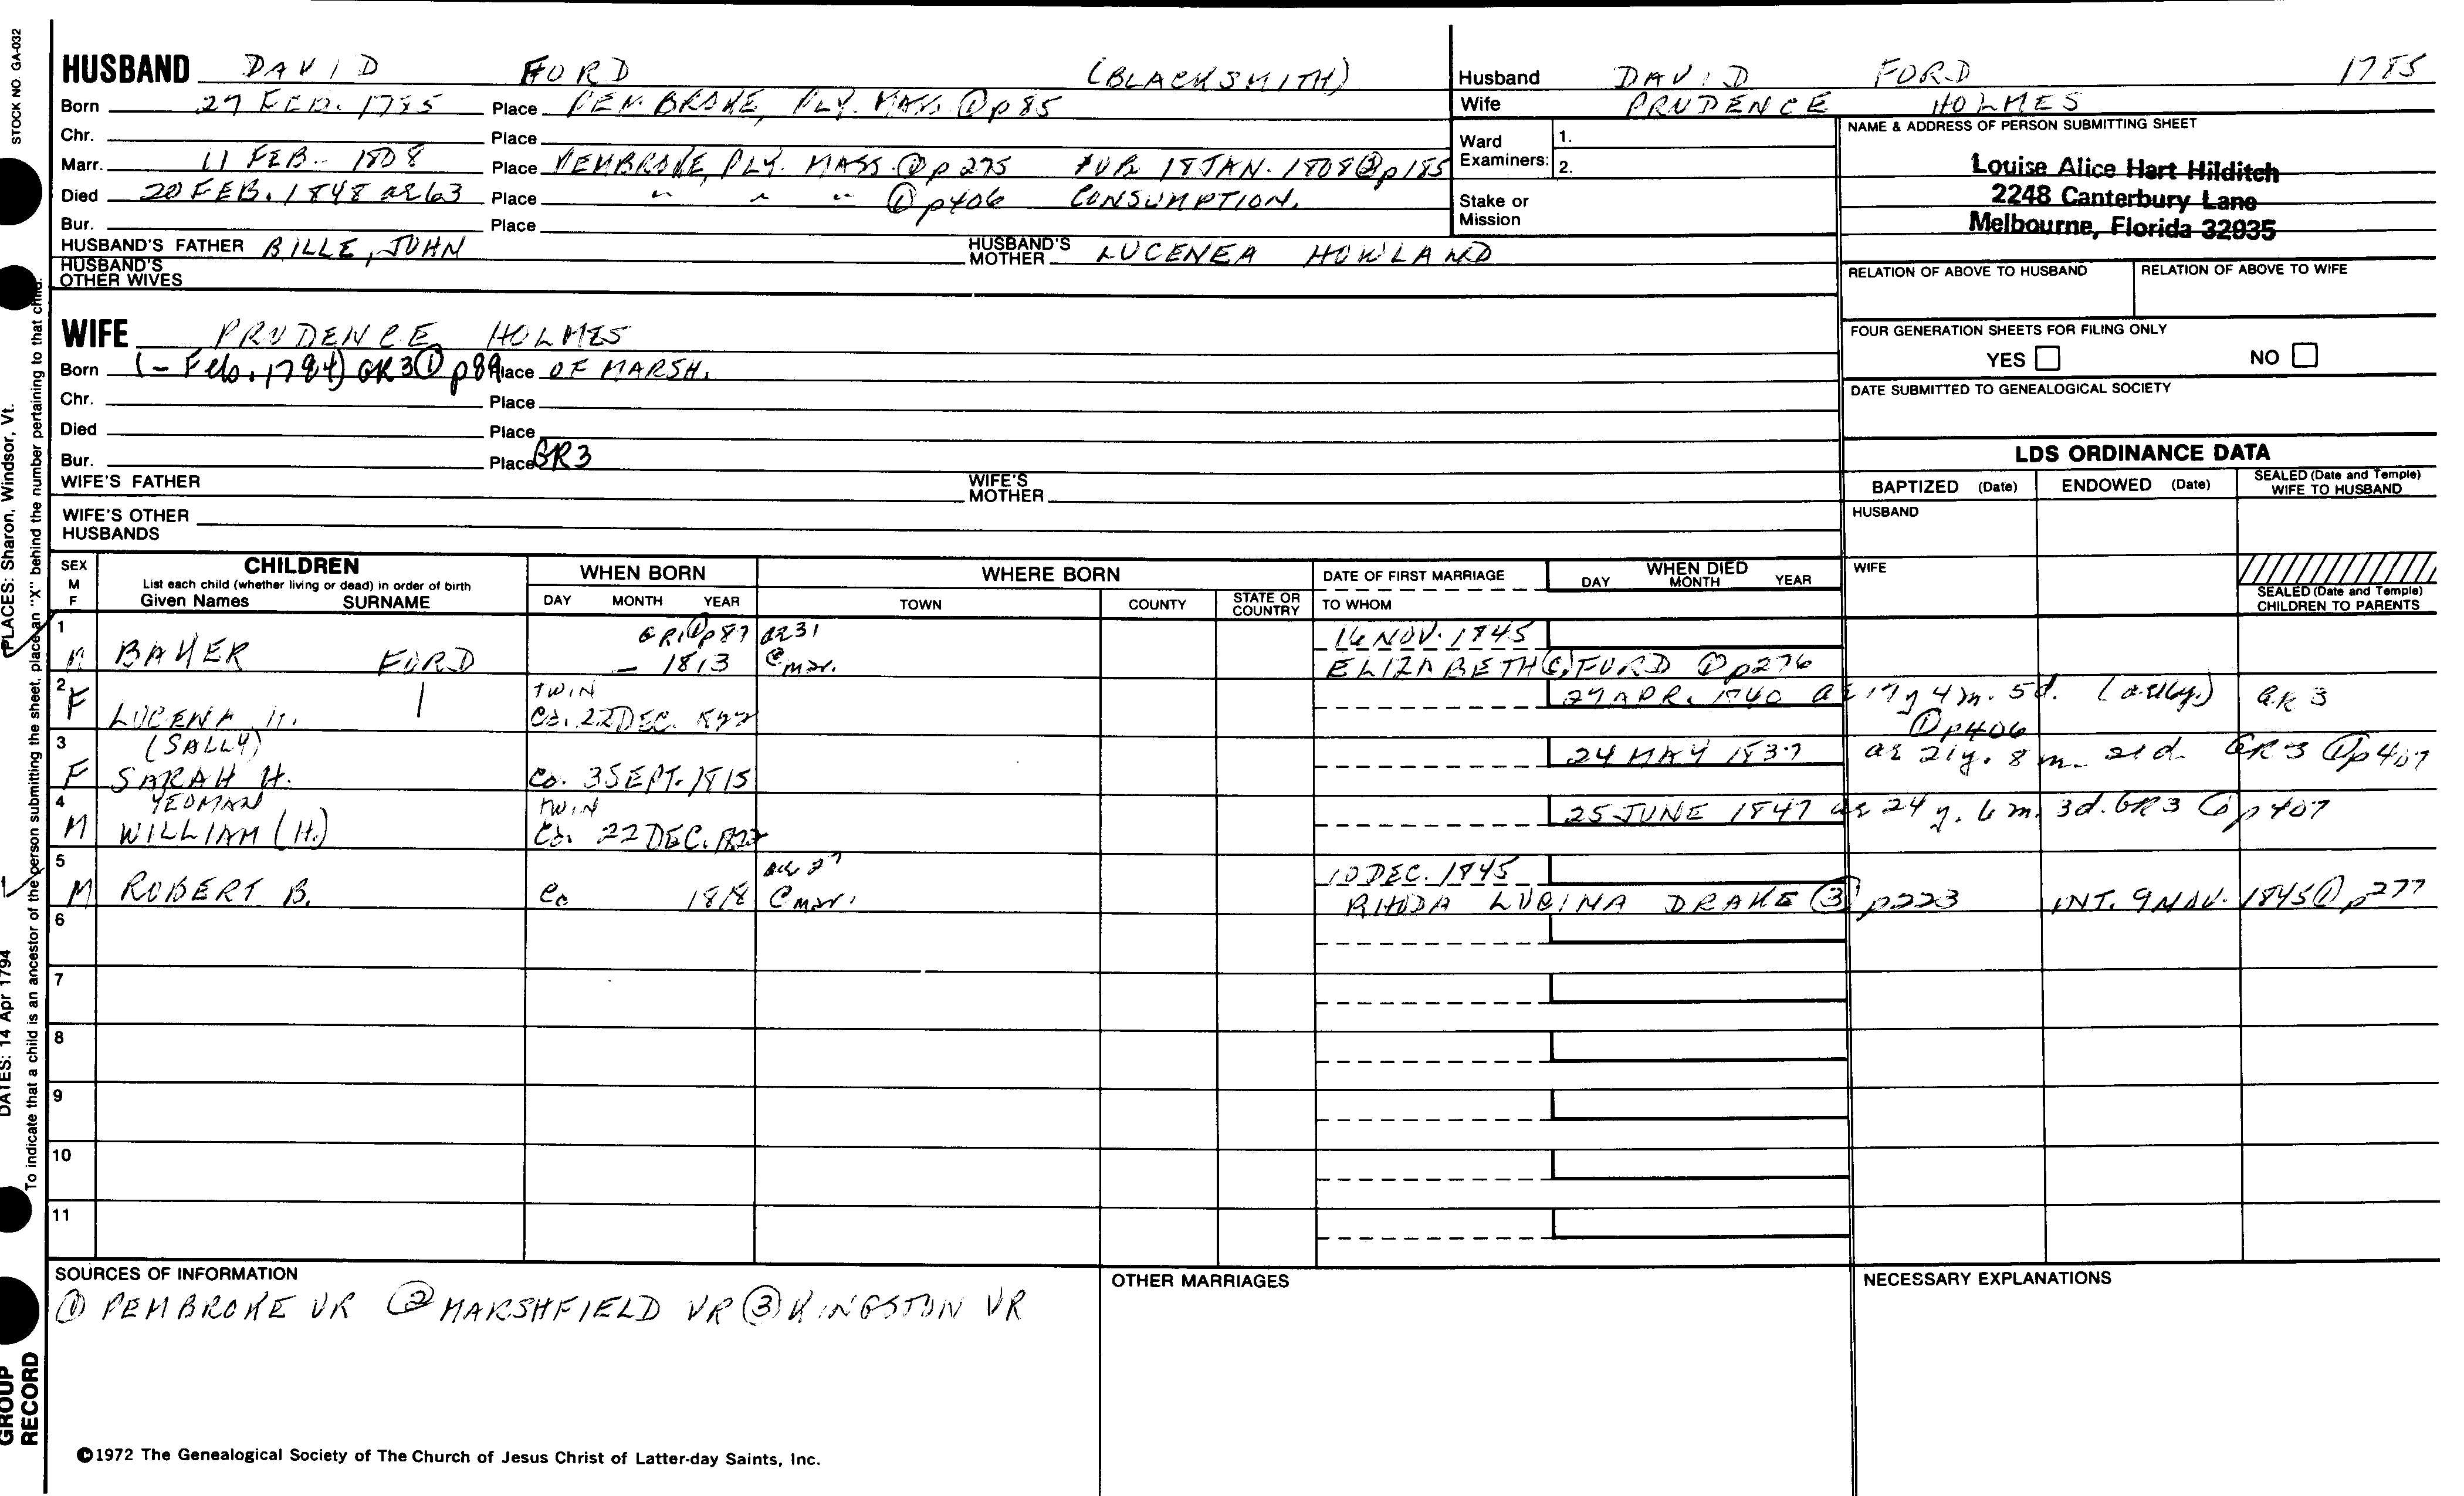 STOCK NO. GA-032
PLACES: Sharon, Windsor, Vt.
DATES: 14 Apr 1794
To indicate that a child is an ancestor of the person submitting the sheet, place an "X" behind the number pertaining to that child.
GROUP
RECORD
HUSBAND DAVID FORD (BLACKSMITH)
Born 27 FEB. 1785 Place PEMBROKE, PLY. MASS. ① p 85
Chr. Place
Marr. 11 FEB - 1808 Place PEMBROKE, PLY. MASS. ① p 275 PUB 18 JAN. 1808 ② p 185
Died 20 FEB. 1848 ae 63 Place " " " ① p406 CONSUMPTION.
Bur. Place
HUSBAND'S FATHER BILLE, JOHN HUSBAND'S MOTHER LUCENEA HOWLAND
HUSBAND'S OTHER WIVES
WIFE PRUDENCE HOLMES
Born (- Feb. 1784) GR3 ① p 89 Place OF MARSH.
Chr. Place
Died Place
Bur. Place GR3
WIFE'S FATHER WIFE'S MOTHER
WIFE'S OTHER HUSBANDS
Husband DAVID FORD 1785
Wife PRUDENCE HOLMES
Ward Examiners: 1.
2.
Stake or Mission
NAME & ADDRESS OF PERSON SUBMITTING SHEET
Louise Alice Hart Hilditch
2248 Canterbury Lane
Melbourne, Florida 32935
RELATION OF ABOVE TO HUSBAND RELATION OF ABOVE TO WIFE
FOUR GENERATION SHEETS FOR FILING ONLY
YES NO
DATE SUBMITTED TO GENEALOGICAL SOCIETY
LDS ORDINANCE DATA
BAPTIZED (Date) ENDOWED (Date) SEALED (Date and Temple) WIFE TO HUSBAND
HUSBAND
WIFE
SEALED (Date and Temple) CHILDREN TO PARENTS
SEX M F
CHILDREN
List each child (whether living or dead) in order of birth
Given Names SURNAME
WHEN BORN
DAY MONTH YEAR
WHERE BORN
TOWN COUNTY STATE OR COUNTRY
DATE OF FIRST MARRIAGE
TO WHOM
WHEN DIED
DAY MONTH YEAR
1 GR1 ① p87 ae 31 16 NOV. 1845
M BAKER FORD - 1813 @ mar. ELIZABETH C. FORD ① p276
2 F TWIN 27 APR. 1840 ae 17 y 4 m. 5d. GR 3
LUCENA H. 22 DEC. ① p406
3 (SALLY) 24 MAY 1837 ae 21y. 8 m. 21d. GR 3 ① p407
F SARAH H. 3 SEPT. 1815
4 YEOMAN TWIN 25 JUNE 1847 ae 24 y. 6 m. 3d. GR 3 ① p 407
M WILLIAM (H.) 22 DEC.
5 ae 27 10 DEC. 1845
M ROBERT B. 1818 @ mar. RHODA LUCINA DRAKE ③ p223 INT. 9 NOV. 1845 ① p277
6
7
8
9
10
11
SOURCES OF INFORMATION
① PEMBROKE VR ② MARSHFIELD VR ③ KINGSTON VR
OTHER MARRIAGES
NECESSARY EXPLANATIONS
©1972 The Genealogical Society of The Church of Jesus Christ of Latter-day Saints, Inc.